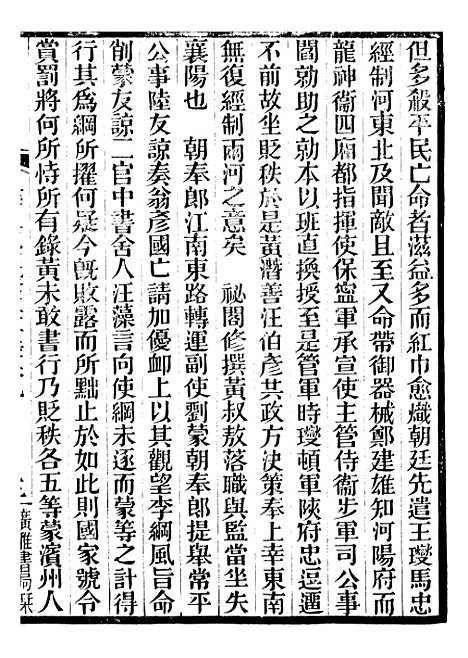 但多殺平民亡命者滋益多而紅巾愈熾朝廷先遣王𤫉馬忠
經制河東北及聞敵且至又命帶御器械鄭建雄知河陽府而
龍神衞四廂都指揮使保寧軍承宣使主管侍衞步軍司公事
閭勍助之勍本以班直換授至是管軍時𤫉頓軍陝府忠逗遛
不前故坐貶秩於是黃潛善汪伯彥共政方決策奉上幸東南
無復經制兩河之意矣　祕閣修撰黃叔敖落職與監當坐失
襄陽也　朝奉郎江南東路轉運副使劉蒙朝奉郎提舉常平
公事陸友諒奏翁彥國亡請加優衈上以其觀望李綱風旨命
削蒙友諒二官中書舍人汪藻言向使綱未逐而蒙等之計得
行其爲綱所擢何疑今旣敗露而所黜止於如此則國家號令
賞罰將何所恃所有錄黃未敢書行乃貶秩各五等蒙濱州人
廣雅書局栞